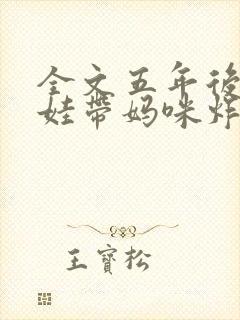 全文五年後
娃帶媽咪炸
王寶松